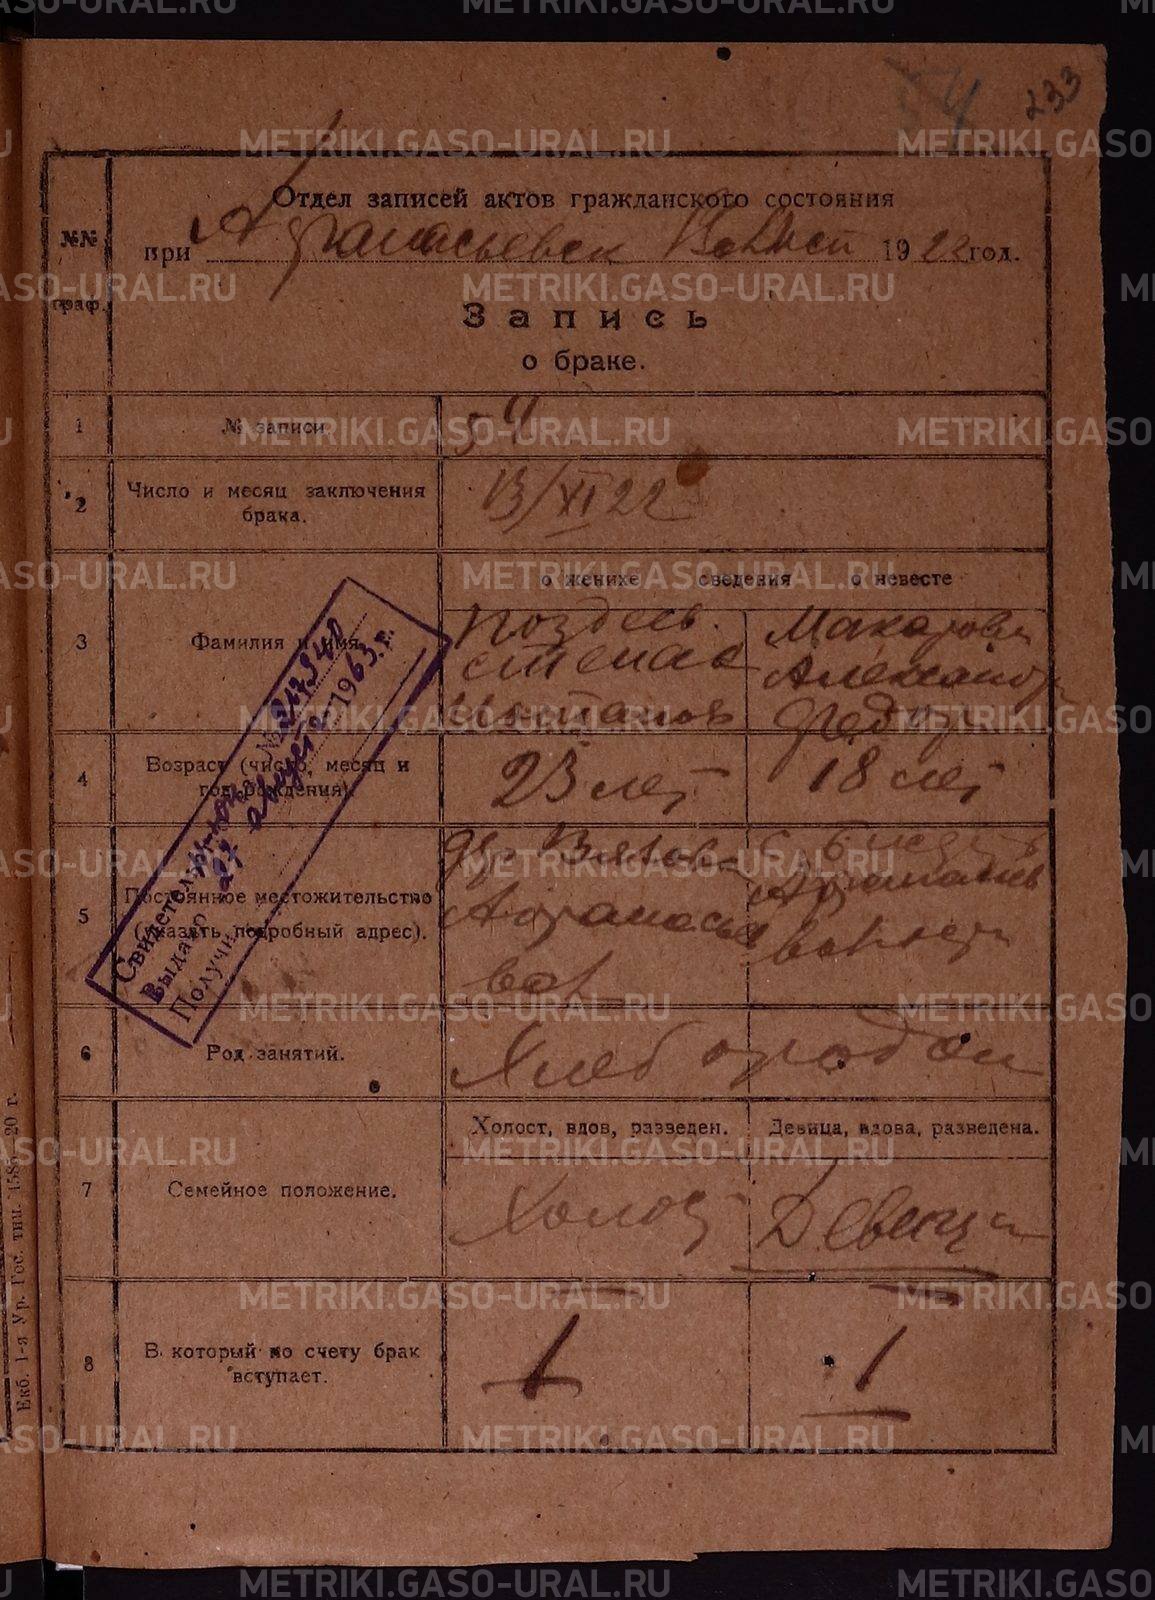 233
Отдел записей актов гражданского состояния
№№ граф.
при Афанасьевск Волисп 1922 год.
Запись
о браке.
1 № записи 54
2 Число и месяц заключения брака. 13/XI 22
о женихе сведения о невесте
3 Фамилия и имя.
Степан
Макарова
Александр
Федор
4 Возраст (число, месяц и год рождения). 23 лет 18 лет
5 Постоянное местожительство (указать подробный адрес).
дер
Афанасьев
вол
6 Род занятий. Хлебородом
Холост, вдов, разведен. Девица, вдова, разведена.
7 Семейное положение. Холост Девица
8 В который по счету брак вступает. 1 1
Свидетельство № 217940
Выдано 27 августа 1963 г.
Получил
Екб. 1-я Ур. Гос. тип. 20 г.
METRIKI.GASO-URAL.RU